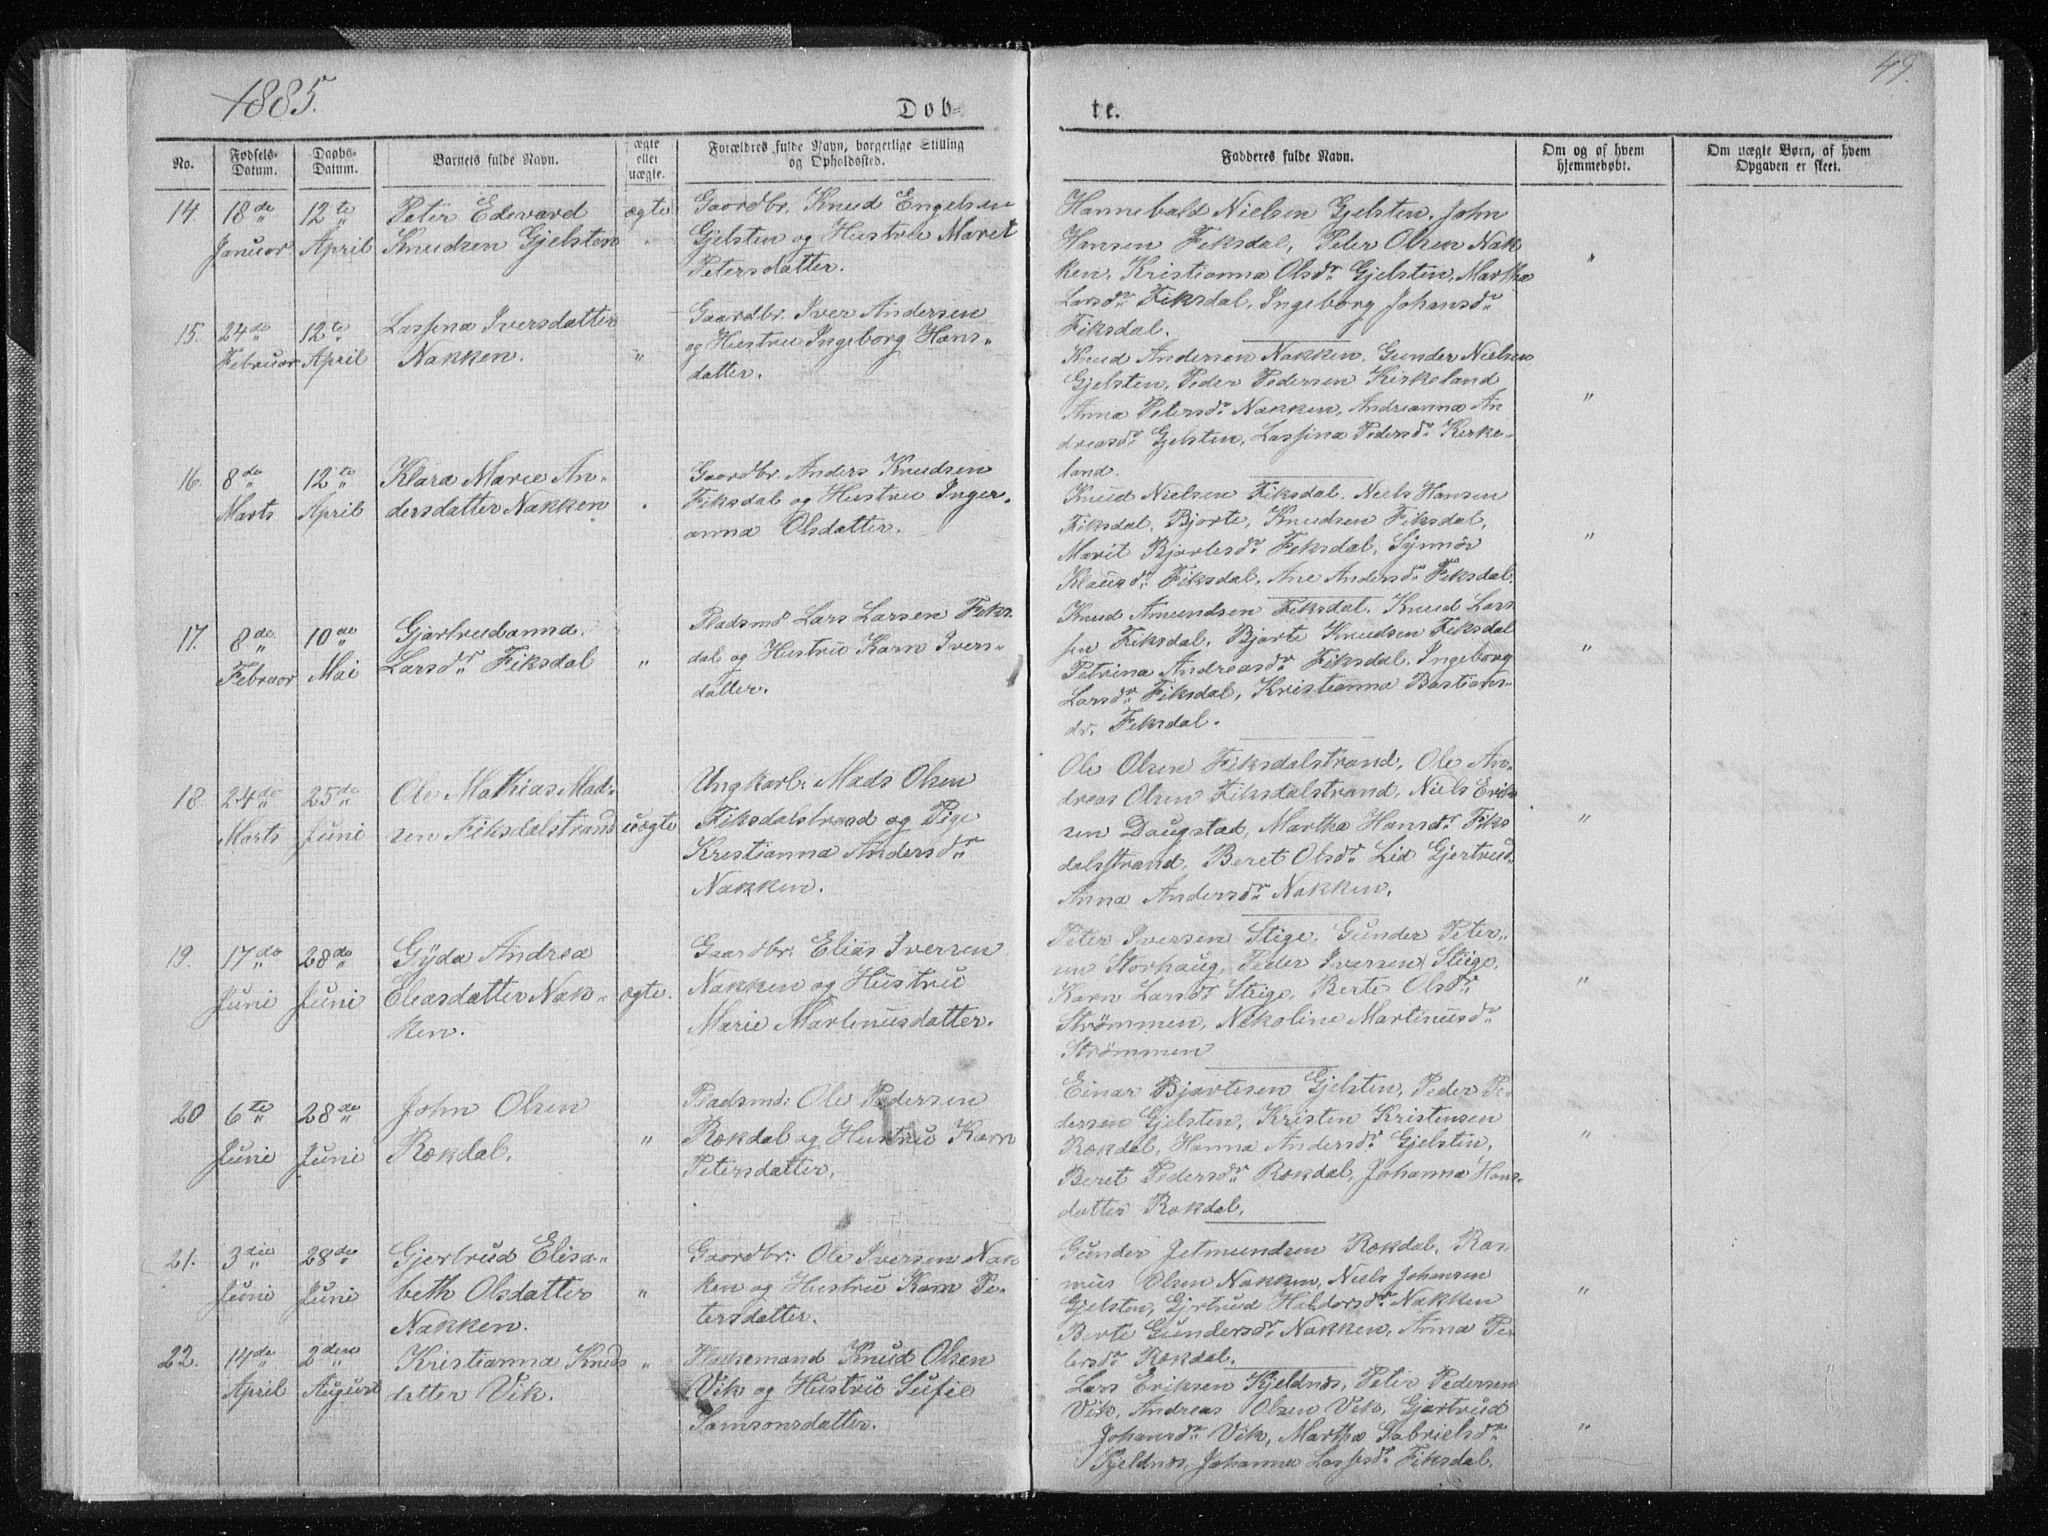 1885.
49.
Døb-
te.
No.
Fødsels-
Datum.
Daabs-
Datum.
Barnets fulde Navn.
ægte
eller
uægte.
Forældres fulde Navn, borgerlige Stilling
og Opholdssted.
Fadderes fulde Navn.
Om og af hvem
hjemmedøbt.
Om uægte Børn, af hvem
Opgaven er skeet.
14. 18de 12te Peter Edevard ægte Gaardbr. Knud Engelsen
Januar April Knudsen Gjelsten Gjelsten og Hustru Marit
Petersdatter.
Hannebald Nielsen Gjelsten, John
Hansen Fiksdal, Peter Olsen Nak
ken, Kristianna Olsdr Gjelsten, Martha
Larsdr Fiksdal, Ingeborg Johansdr
Fiksdal.
15. 24de 12te Lassina Iversdatter " Gaardbr. Iver Andersen
Februar April Nakken. og Hustru Ingeborg Hans-
datter.
Knud Andersen Nakken, Gunder Nielsen
Gjelsten, Peder Pedersen Kirkeland
Anna Petersdr Nakken, Andreanna An
dreasdr Gjelsten, Lassina Pedersdr Kirke-
land.
16. 8de 12te Klara Marie An- Gaardbr. Anders Knudsen
Marts April dersdatter Nakken Fiksdal og Hustru Inger-
anna Olsdatter.
Knud Nielsen Fiksdal, Niels Hansen
Fiksdal, Bjarte Knudsen Fiksdal,
Marit Bjartesdr Fiksdal, Synnøv
Klausdr Fiksdal, Ane Andersdr Fiksdal.
17. 8de 10de Gjertrudanna Pladsmd Lars Larsen Fiks-
Februar Mai Larsdr Fiksdal " dal og Hustru Karn Ivers-
datter.
Knud Amundsen Fiksdal, Knud Las
sen Fiksdal, Bjarte Knudsen Fiksdal
Petrina Andreasdr Fiksdal, Ingeborg
Larsdr Fiksdal, Kristianna Bastians-
dr. Fiksdal.
18. 24de 25de Ole Mathias Mad- Ungkarl: Mads Olsen
Marts Juni sen Fiksdalstrand uægte Fiksdalstrand og Pige
Kristianna Andersdr
Nakken.
Ole Olsen Fiksdalstrand, Ole An-
dreas Olsen Fiksdalstrand, Niels Erik
sen Daugstad, Martha Hansdr Fiks
dalsstrand, Beret Olsdr Lid Gjertrud
Anna Andersdr Nakken.
19. 17de 28de Gyda Andrea Gaardbr: Elias Iversen
Juni Juni Eliasdatter Nak- ægte. Nakken og Hustru
ken. Marie Martinusdatter.
Peter Iversen Stige, Gunder Peter-
sen Storhaug, Peder Iversen Stige,
Karn Larsdr Stige, Berte Olsdr
Strømmen, Nikoline Martinusdr
Strømmen
20 6te 28de John Olsen Pladsmd: Ole Pedersen
Juni Juni Rækdal. " Rækdal og Hustru Karn
Petersdatter.
Einar Bjartesen Gjelsten, Peder Pe
dersen Gjelsten, Kristen Kristensen
Rækdal, Hanna Andersdr Gjelsten,
Beret Pedersdr Rækdal, Johanna Hans-
datter Rækdal.
21. 3die 28de Gjertrud Elisa- Gaardbr: Ole Iversen Nak
Juni Juni beth Olsdatter " ken og Hustru Karn Pe-
Nakken. tersdatter.
Gunder Jetmundsen Rækdal, Ras
mus Olsen Nakken, Niels Johansen
Gjelsten, Gjrtrud Haldorsdr Nakken
Berte Gundersdr Nakken, Anna Pe
tersdr Rækdal.
22. 14de 2den Kristianna Knuds " Pladsemand Knud Olsen
April August datter Vik. Vik og Hustru Sufie
Samsonsdatter.
Lars Eriksen Kjeldnæs, Peter Pedersen
Vik, Andreas Olsen Vik, Gjertrud
Johansdr Vik, Martha Gabrielsdr
Kjeldnæs, Johanna Lassesdr Fiksdal.